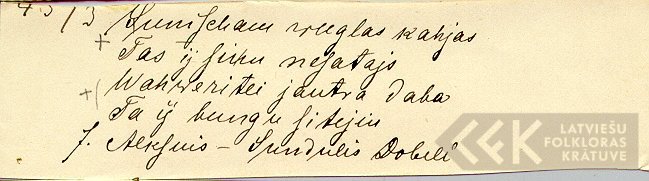 45/3
Kumscham weeglas kahjas
Tas ij sirnu nesatajs
Wahweritei jautra daba
Ta ij bungu sitejin
J. Aleksnis – Sundulis Dobelē
LATVIEŠU
FOLKLORAS
KRĀTUVE
LFK